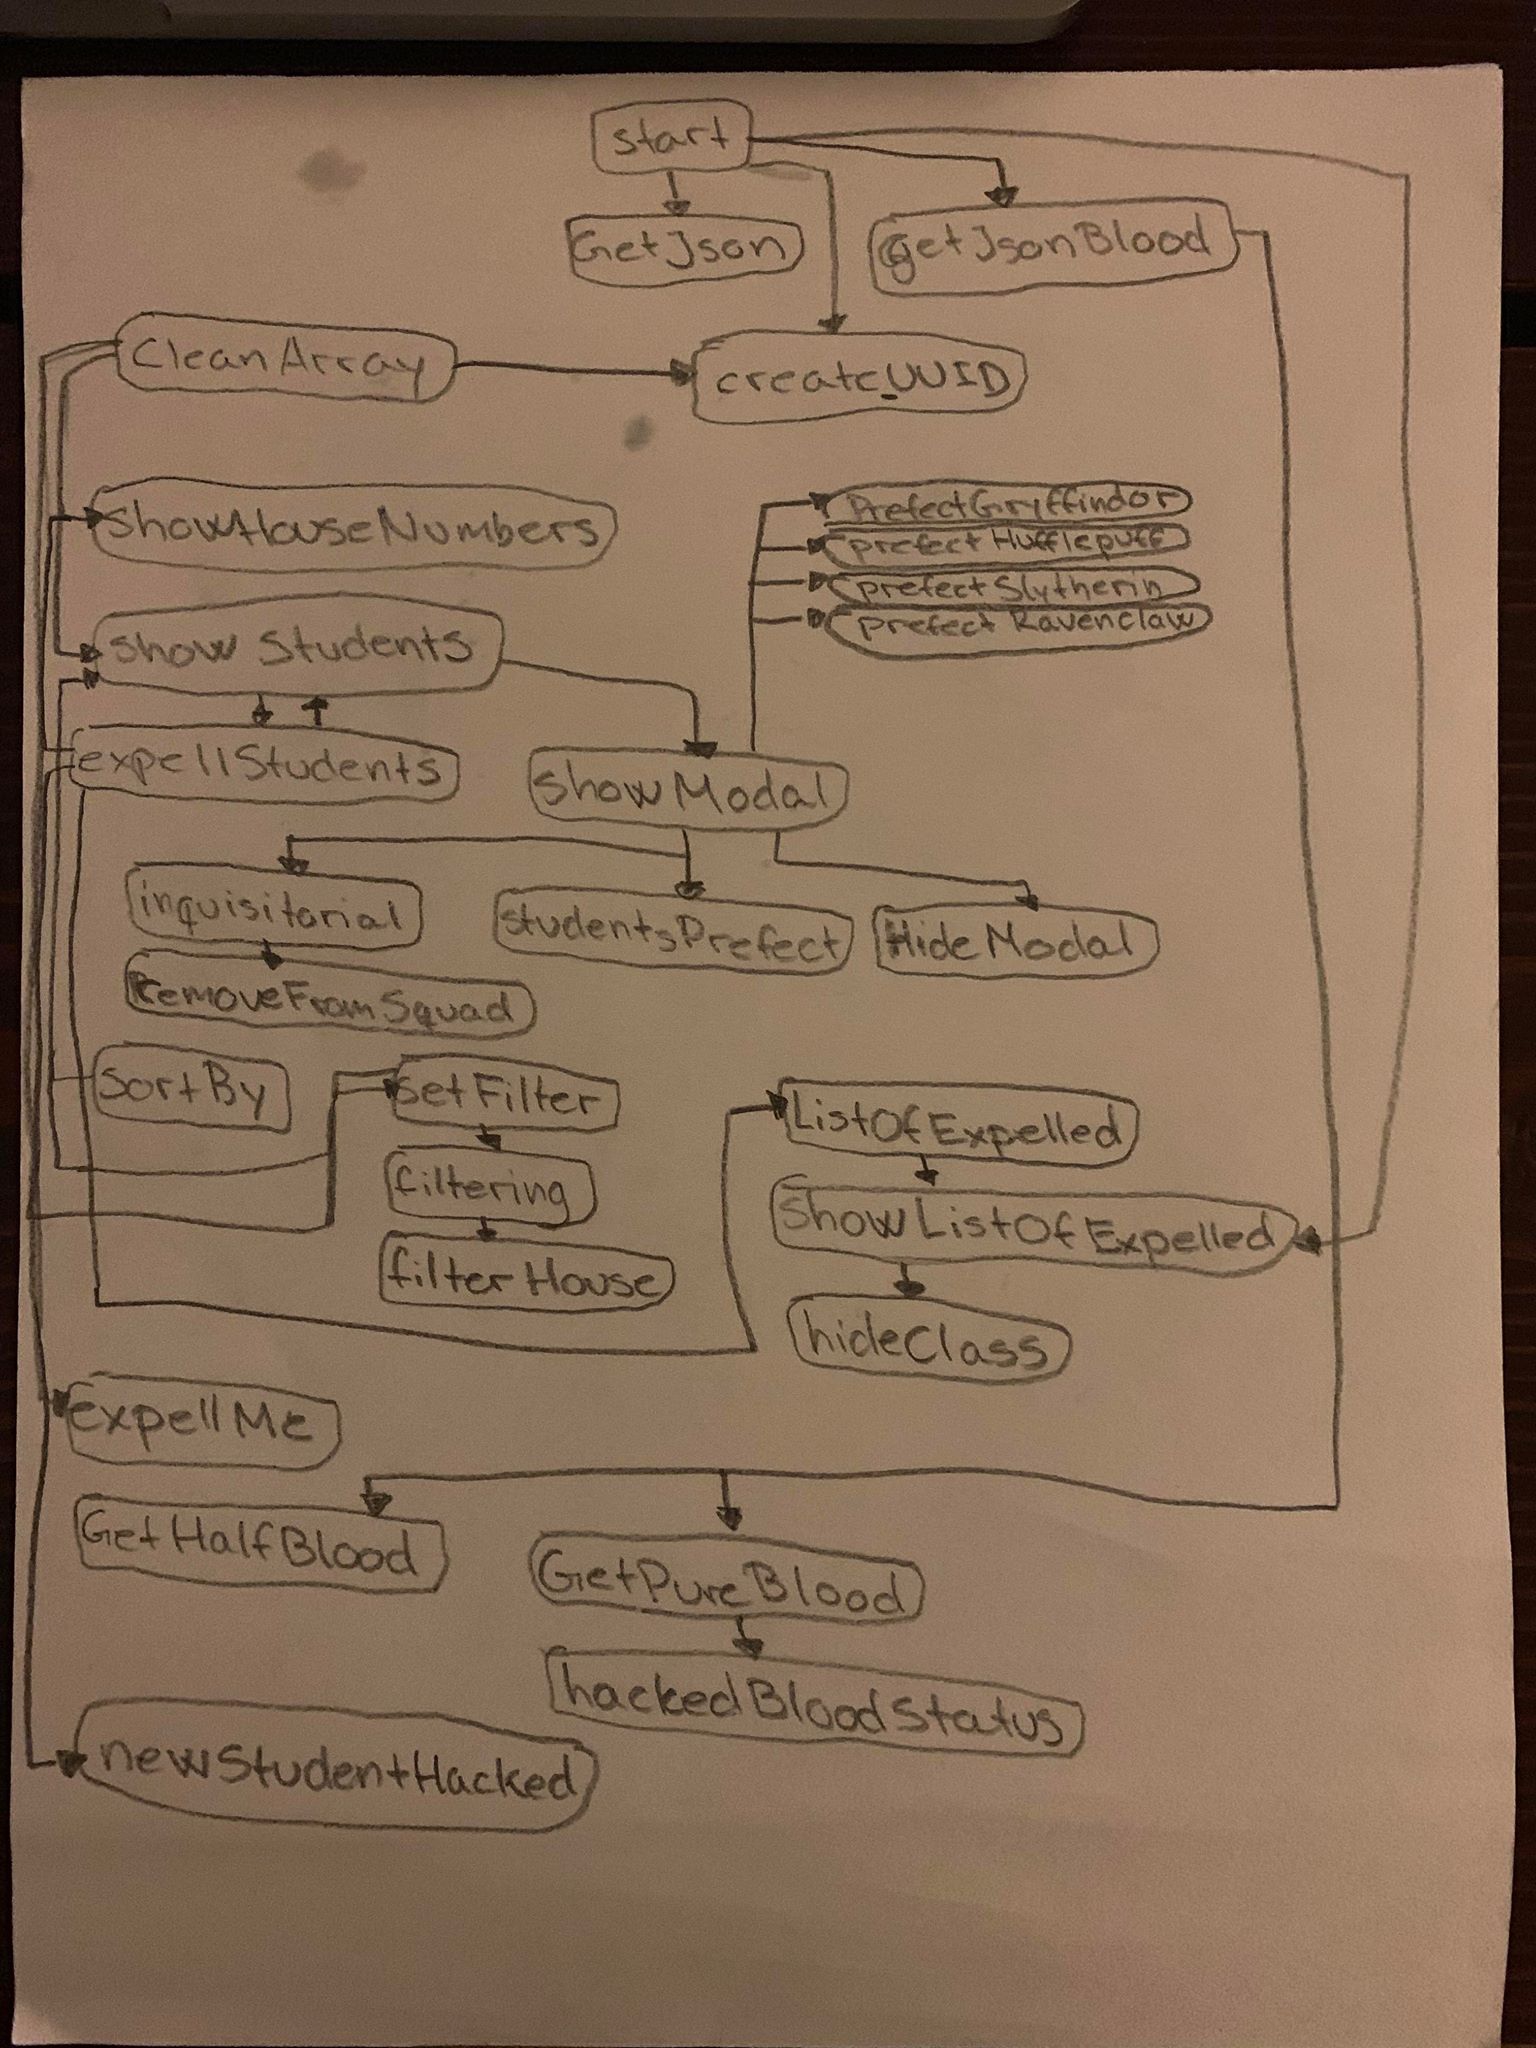 start
GetJson
getJsonBlood
CleanArray
create_UUID
showHouseNumbers
PrefectGryffindor
prefect Hufflepuff
prefect Slytherin
prefect Ravenclaw
show Students
expellStudents
showModal
inquisitorial
studentsPrefect
HideModal
RemoveFromSquad
sortBy
setFilter
ListOfExpelled
filtering
showListOfExpelled
filterHouse
hideClass
expellMe
GetHalfBlood
GetPureBlood
hackedBloodStatus
newStudentHacked